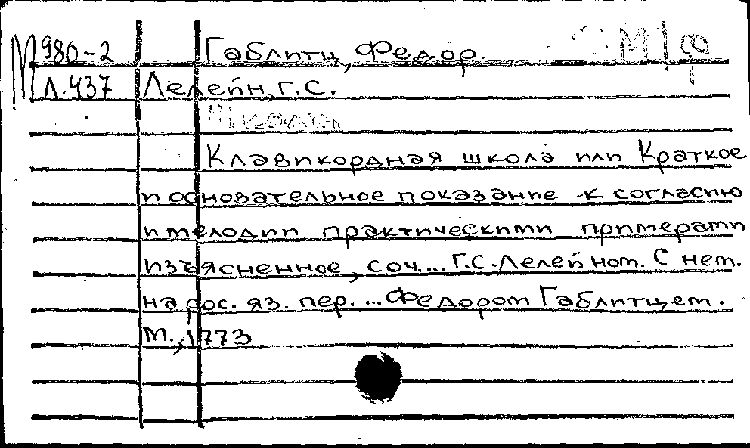 М 980-2 Габлитц, Федор. М|ф
Л.437 Лелейн, Г.С.
Клавикордная школа или Краткое
и основательное показание к согласию
и мелодии практическими примерами
изъясненное, соч... Г.С. Лелейном. С нем.
на рос. яз. пер. ... Федором Габлитцем.
М., 1773